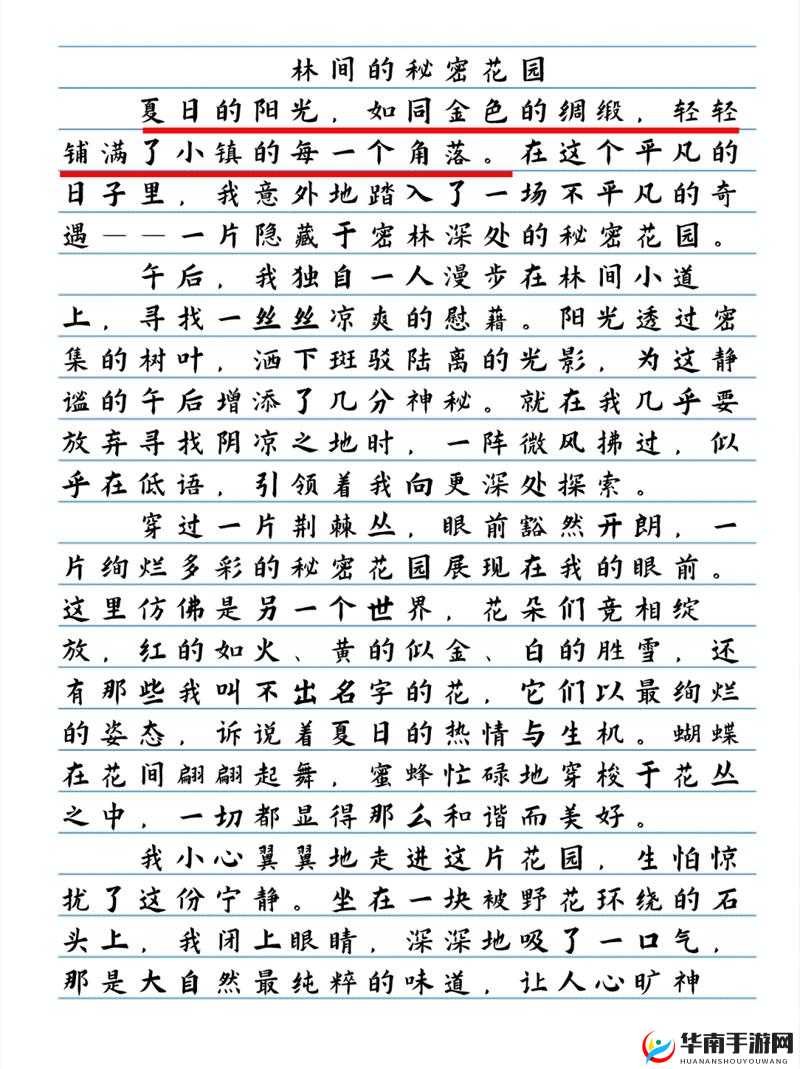 林间的秘密花园
夏日的阳光，如同金色的绸缎，轻轻
铺满了小镇的每一个角落。在这个平凡的
日子里，我意外地踏入了一场不平凡的奇
遇——一片隐藏于密林深处的秘密花园。
午后，我独自一人漫步在林间小道
上，寻找一丝丝凉爽的慰藉。阳光透过密
集的树叶，洒下斑驳陆离的光影，为这静
谧的午后增添了几分神秘。就在我几乎要
放弃寻找阴凉之地时，一阵微风拂过，似
乎在低语，引领着我向更深处探索。
穿过一片荆棘丛，眼前豁然开朗，一
片绚烂多彩的秘密花园展现在我的眼前。
这里仿佛是另一个世界，花朵们竞相绽
放，红的如火、黄的似金、白的胜雪，还
有那些我叫不出名字的花，它们以最绚烂
的姿态，诉说着夏日的热情与生机。蝴蝶
在花间翩翩起舞，蜜蜂忙碌地穿梭于花丛
之中，一切都显得那么和谐而美好。
我小心翼翼地走进这片花园，生怕惊
扰了这份宁静。坐在一块被野花环绕的石
头上，我闭上眼睛，深深地吸了一口气，
那是大自然最纯粹的味道，让人心旷神
华南手游网
HUANANSHOUYOUWANG